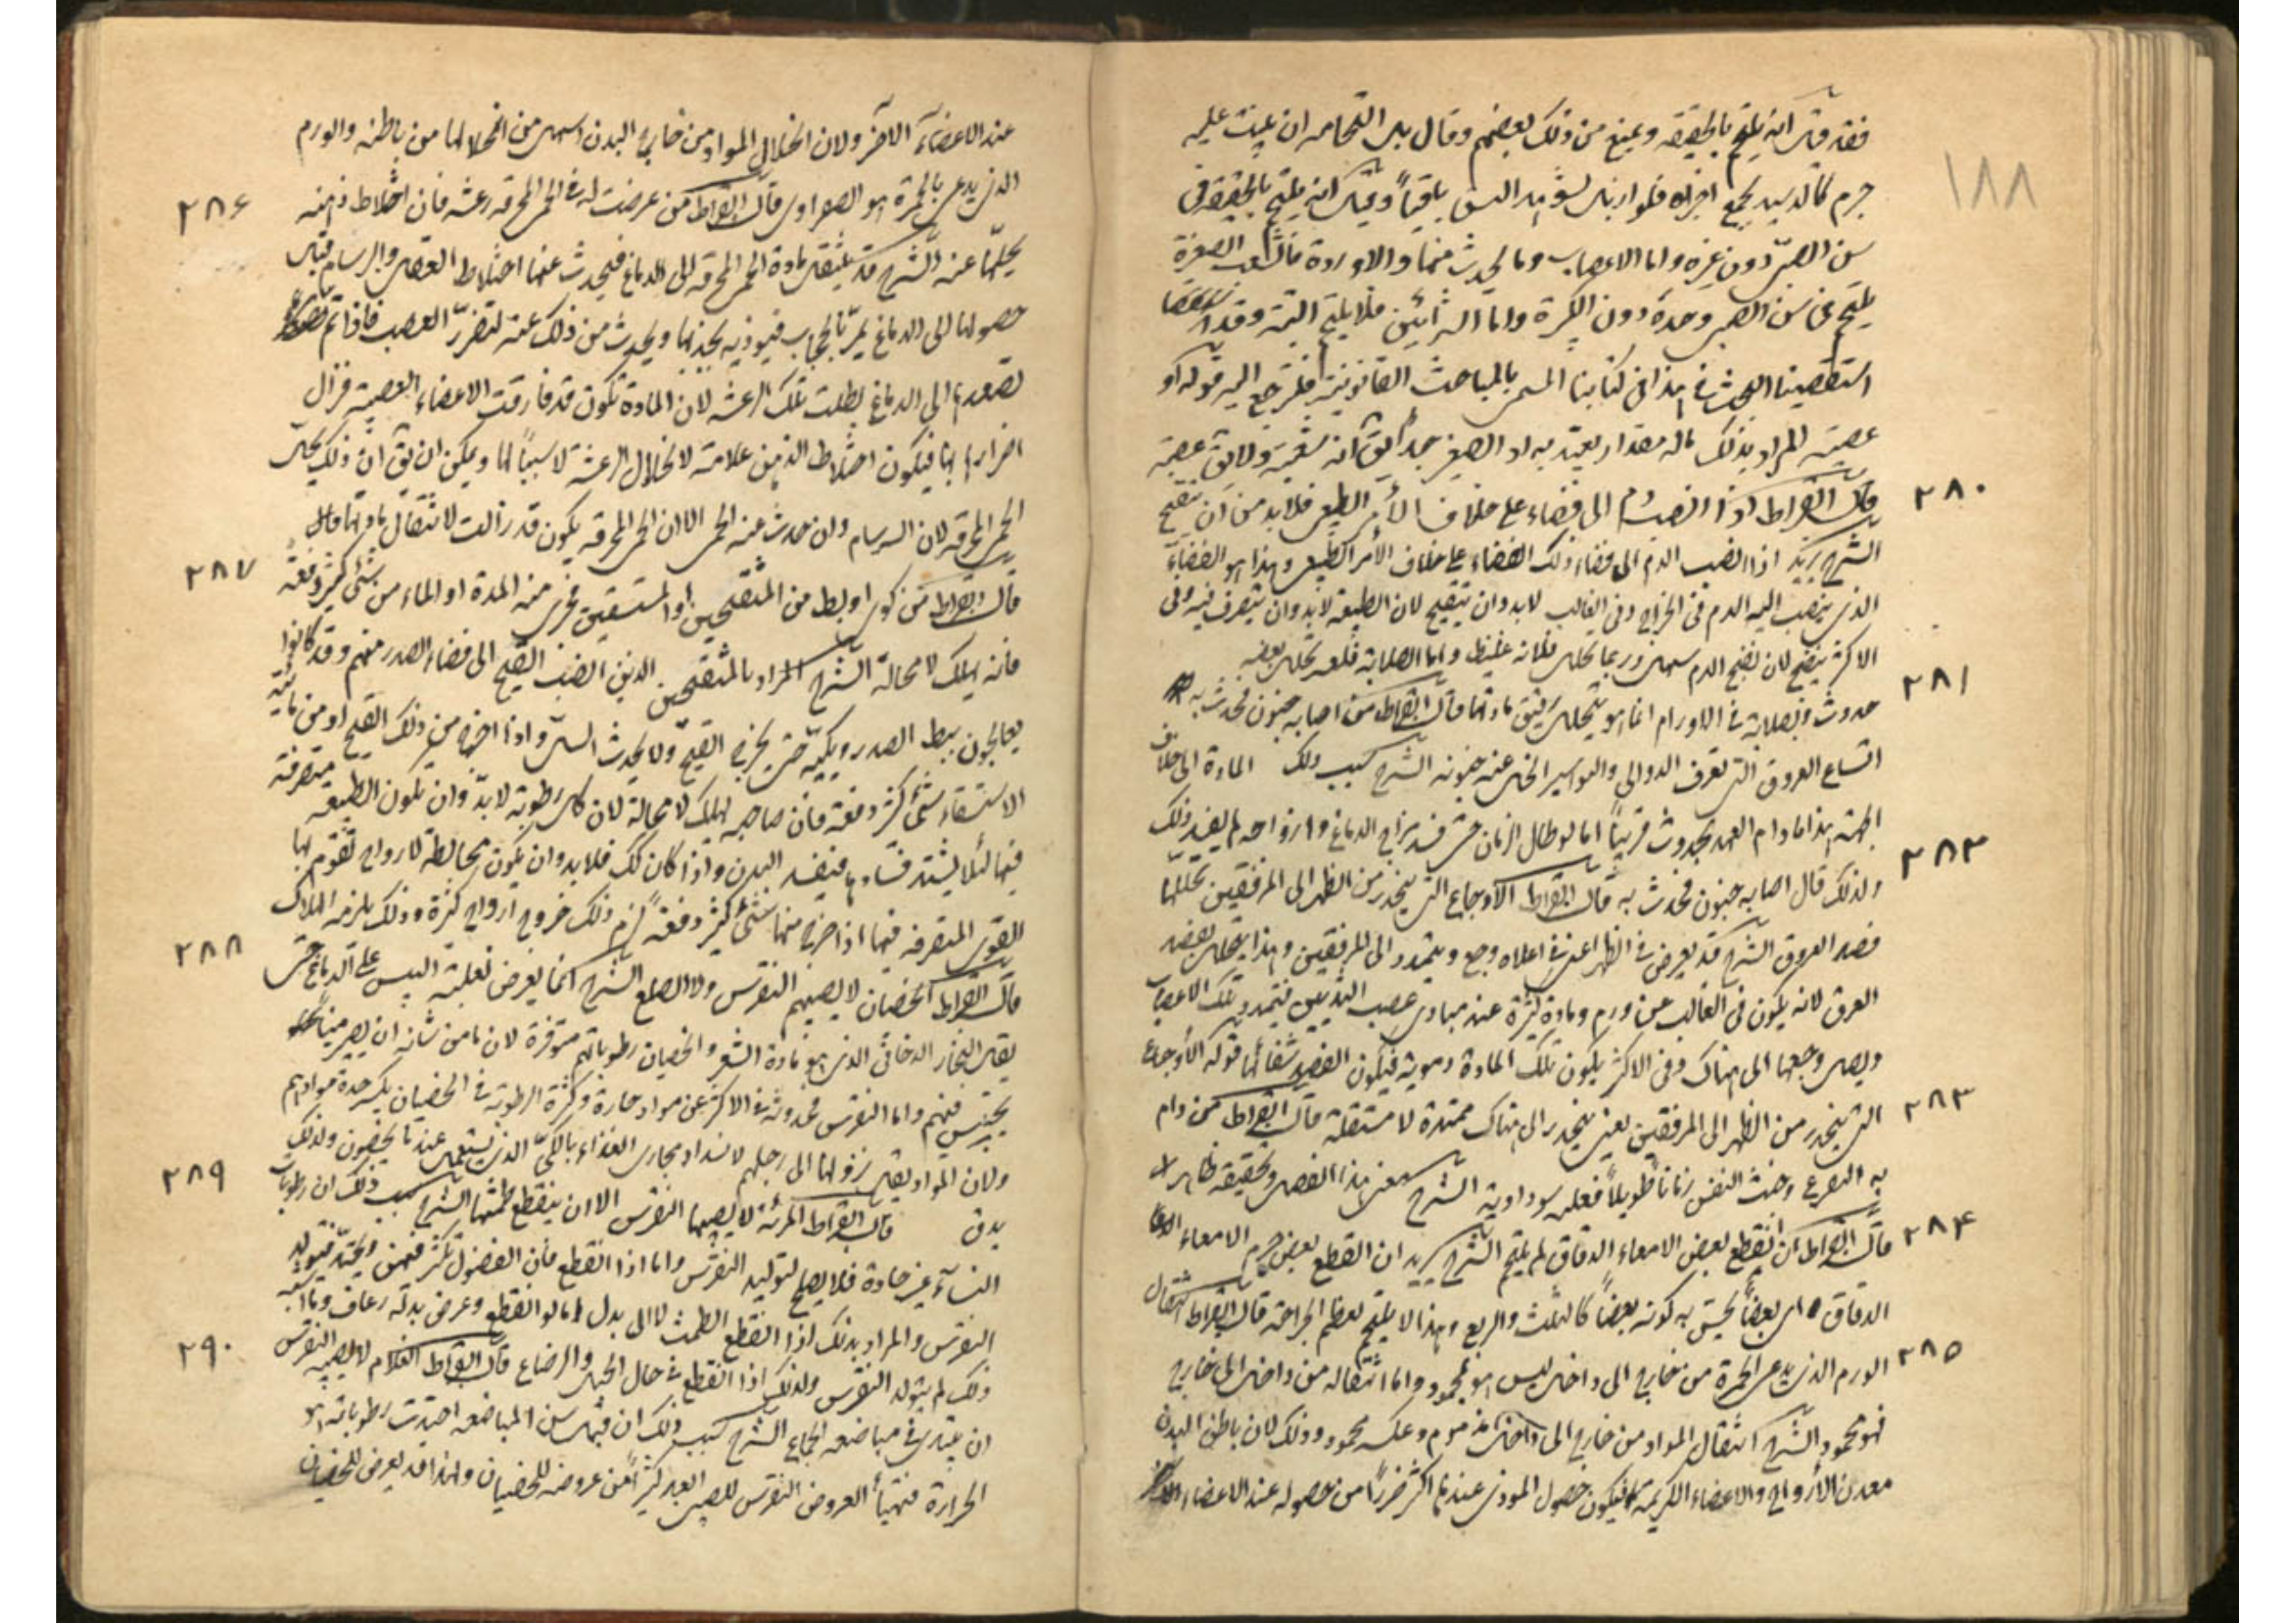 ١٨٨
فقد قيل انه يلتحم بالحقيقة ومنع من ذلك بعضهم وقال بل التحامه ان ينبت عليه
جرم كالدسيد يجمع اجزاه فلو ازيل لشوهد الشق باقياً وقيل انه يلتحم بالحقيقة فى
سن الصبى دون غيره واما الاعصاب وما يحدث منها والاوردة فالشعب الصغيرة
يلتحم فى سن الصبى وحده دون الكبيرة واما الشرائين فلا يلتحم البتة وقد
استقصينا البحث فى هذا فى كتابنا المسمى بالمباحث القانونية فليرجع اليه قوله او
عصبة المراد بذلك ماله مقدار يعتد به اذ الصغير جداً يقال انه شعبة ولا يقال عصبة
٢٨٠
قال ابقراط اذا انصب دم الى فضاء على خلاف الأمر الطبيعى فلابد من ان يتقيح
الشرح يريد اذا انصب الدم الى فضاء ذلك الفضاء على خلاف الأمر الطبيعى وهذا هو الفضاء
الذى ينصب اليه الدم فى الخراج وفى الغالب لابد وان يتقيح لان الطبيعة لابد وان يتصرف فيه وفى
الاكثر ينضج لان نضج الدم سهل وربما تحلل فلانه غليظ واما الصلابة فلعسر تحلل بعضه
٢٨١
حدوث الصلابة فى الاورام انما هو بتحلل رقيق مادتها قال ابقراط من اصابه جنون فحدث به
اتساع العروق التى تعرف الدوالى والبواسير انحل عنه جنونه الشرح سبب ذلك المادة الى خلاف
الجهة هذا مادام العهد بحدوثه قريباً اما لو طال الزمان حتى فسد مزاج الدماغ وارواحه لم يفد ذلك
٢٨٢
ولذلك قال اصابه جنون فحدث به قال ابقراط الاوجاع التى ينحدر من الظهر الى المرفقين تحللها
فصد العروق الشرح قد يعرض فى الظهر اعنى فى اعلاه وجع ويتمدد الى المرفقين وهذا يحلله فصد
العرق لانه يكون فى الغالب عن ورم ومادة كثيرة عند مبادى عصب اليدين فيتمدد تلك الاعصاب
ويصل وجعها الى هناك وفى الاكثر يكون تلك المادة دموية فيكون الفصد شفائها قوله الأوجاع
٢٨٣
التى ينحدر من الظهر الى المرفقين يعنى ينحدر الى هناك ممتدة لا منتقلة قال ابقراط من دام
به التفزع وخبث النفس زماناً طويلاً فعلته سوداوية الشرح معنى هذا الفصل وتحقيقه ظاهر
٢٨٤
قال ابقراط ان انقطع بعض الامعاء الدقاق لم يلتحم الشرح يريد ان انقطع بعض جرم الامعاء
الدقاق اى بعضاً يحس به كونه بعضاً كالثلث والربع وهذا لا يلتحم لعظم الجراحة قال ابقراط انتقال
٢٨٥
الورم الذى يدعى الحمرة من خارج الى داخل ليس هو بمحمود واما انتقاله من داخل الى خارج
فهو محمود الشرح انتقال المواد من خارج الى داخل مذموم وعكسه محمود وذلك لان باطن البدن
معدن الأرواح والاعضاء الكريمة فيكون حصول الموذى عندها اكثر ضرراً من حصوله عند الاعضاء
عند الاعضاء الاخر ولان انحلال المواد من خارج البدن اسهل من انحلالها من باطنه والورم
٢٨٦
الذى يدعى بالحمرة هو الصفراوى قال ابقراط من عرضت له فى الحمى المحرقة رعشة فان اختلاط ذهنه
يحلها عنه الشرح قد ينتقل مادة الحمى المحرقة الى الدماغ فيحدث عنها اختلاط العقل والبرسام وقبل
حصولها الى الدماغ يمر بالحجاب فتوذيه بحذتها ويحدث من ذلك عنه لتضرر العصب فاذا تم
تصعدها الى الدماغ بطلت تلك الرعشة لان المادة تكون قد فارقت الاعضاء العصبية فزال
اضرارها بها فيكون اختلاط الذهن علامة لانحلال الرعشة لا سبباً لها ويمكن ان يقال ان ذلك يحل
الحمى المحرقة لان السرسام وان حدث عنه الحمى الا ان الحمى المحرقة يكون قد زالت لانتقال مادتها
٢٨٧
قال ابقراط من كوى او بط من المتقيحين او المستسقين فجرى منه المدة او الماء من شئ كثير دفعة
فانه يهلك لا محالة الشرح المراد بالمتقيحين الذين انصب القيح الى فضاء الصدر منهم وقد كانوا
يعالجون ببط الصدر وبكيه حتى يخرج القيح ولا يحدث السل واذا اخرج من ذلك القيح او من مائية
الاستسقاء شئ كثير دفعة فان صاحبه يهلك لا محالة لان كل رطوبة لابد وان يكون الطبيعة متصرفة
فيها لئلا يشتد فسادها فيفسد البدن واذا كان كك فلابد وان يكون مخالطة لارواح تقوم بها
القوى المتصرفة فيها اذا خرج منها شئ كثير دفعة لزم ذلك خروج ارواح كثيرة وذلك يلزمه الهلاك
٢٨٨
قال ابقراط الخصيان لا يصيبهم النقرس ولا الصلع الشرح انما يعرض لغلبة اليبس على الدماغ حتى
يقل البخار الدخانى الذى هو مادة الشعر والخصيان رطوباتهم متوفرة لان ما من شأنه ان يصير منياً
يحتبس فيهم واما النقرس فحدوثه فى الاكثر عن مواد حارة وكثرة الرطوبة فى الخصيان يكسر حدة موادهم
ولان المواد يقل نزولها الى رجلهم لانسداد مجارى الغذاء بالكى الذى يستعمل عندما يخصون ولذلك
٢٨٩
يدق قال ابقراط المرئة لا يصيبها النقرس الا ان ينقطع طمثها الشرح سبب ذلك ان رطوبات
النساء غير حادة فلا يصلح لتوليد النقرس واما اذا انقطع فان الفضول تكثر فيهن ويحتد فيتولد
النقرس والمراد بذلك اذا انقطع الطمث لا الى بدل اما لو انقطع وعرض بدله رعاف وما اشبه
٢٩٠
ذلك لم يتولد النقرس ولذلك اذا انقطع فى حال الحبل والرضاع قال ابقراط الغلام لا يصيبه النقرس
ان يبتدى فى مباضعة الجماع الشرح سبب ذلك ان قبل سن المباضعة احتدت رطوباته
الحرارة فتهيأ العروض النقرس للصبى ابعد كثيراً من عروضه للخصيان ولهذا قد يعرض للخصيان